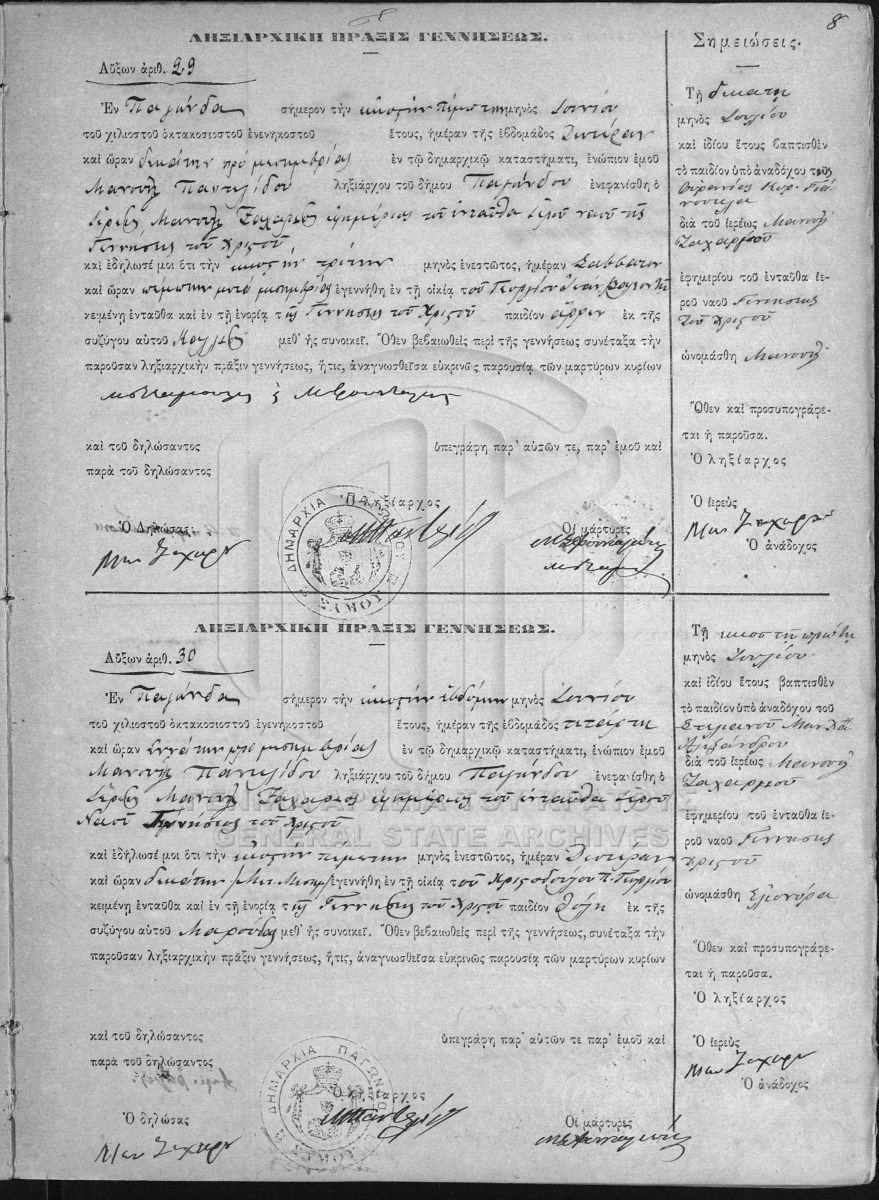 8
ΛΗΞΙΑΡΧΙΚΗ ΠΡΑΞΙΣ ΓΕΝΝΗΣΕΩΣ.
Αὔξων ἀριθ. 29
Ἐν Παγώνδα σήμερον τὴν εἰκοστὴν πέμπτην μηνὸς Ἰουνίου
τοῦ χιλιοστοῦ ὀκτακοσιοστοῦ ἐνενηκοστοῦ ἔτους, ἡμέραν τῆς ἑβδομάδος Δευτέραν
καὶ ὥραν δεκάτην πρὸ μεσημβρίας ἐν τῷ δημαρχικῷ καταστήματι, ἐνώπιον ἐμοῦ
Μανουὴλ Παντελίδου ληξιάρχου τοῦ δήμου Παγώνδου ἐνεφανίσθη ὁ
ἱερεὺς Μανουὴλ Ζαχαρίου ἐφημέριος τοῦ ἐνταῦθα ἱεροῦ ναοῦ τῆς
Γεννήσεως τοῦ Χριστοῦ
καὶ ἐδήλωσέ μοι ὅτι τὴν εἰκοστὴν τρίτην μηνὸς ἐνεστῶτος, ἡμέραν Σάββατον
καὶ ὥραν πέμπτην μετὰ μεσημβρίας ἐγεννήθη ἐν τῇ οἰκίᾳ τοῦ Γεωργίου
κειμένῃ ἐνταῦθα καὶ ἐν τῇ ἐνορίᾳ τῆς Γεννήσεως τοῦ Χριστοῦ παιδίον ἄρρεν ἐκ τῆς
συζύγου αὐτοῦ μεθ' ἧς συνοικεῖ. Ὅθεν βεβαιωθεὶς περὶ τῆς γεννήσεως συνέταξα τὴν
παροῦσαν ληξιαρχικὴν πρᾶξιν γεννήσεως, ἥτις, ἀναγνωσθεῖσα εὐκρινῶς παρουσίᾳ τῶν μαρτύρων κυρίων
καὶ τοῦ δηλώσαντος ὑπεγράφη παρ' αὐτῶν τε, παρ' ἐμοῦ καὶ
παρὰ τοῦ δηλώσαντος
Ὁ Ληξίαρχος
Ὁ Δηλώσας Οἱ μάρτυρες
Μαν Ζαχαρίου
ΔΗΜΑΡΧΙΑ ΠΑΓΩΝΔΟΥ
ΣΑΜΟΥ
Σημειώσεις.
Τῇ δεκάτῃ
μηνὸς Ἰουλίου
καὶ ἰδίου ἔτους βαπτισθὲν
τὸ παιδίον ὑπὸ ἀναδόχου τῆς
Οὐρανίας
διὰ τοῦ ἱερέως Μανουὴλ
Ζαχαρίου
ἐφημερίου τοῦ ἐνταῦθα ἱεροῦ
ναοῦ Γεννήσεως
τοῦ Χριστοῦ
ὠνομάσθη Μανουὴλ
Ὅθεν καὶ προσυπογράφεται
ἡ παροῦσα.
Ὁ ληξίαρχος
Ὁ ἱερεὺς
Μαν Ζαχαρίου
Ὁ ἀνάδοχος
ΛΗΞΙΑΡΧΙΚΗ ΠΡΑΞΙΣ ΓΕΝΝΗΣΕΩΣ.
Αὔξων ἀριθ. 30
Ἐν Παγώνδα σήμερον τὴν εἰκοστὴν ἑβδόμην μηνὸς Ἰουνίου
τοῦ χιλιοστοῦ ὀκτακοσιοστοῦ ἐνενηκοστοῦ ἔτους, ἡμέραν τῆς ἑβδομάδος τετάρτην
καὶ ὥραν ἐννάτην πρὸ μεσημβρίας ἐν τῷ δημαρχικῷ καταστήματι, ἐνώπιον ἐμοῦ
Μανουὴλ Παντελίδου ληξιάρχου τοῦ δήμου Παγώνδου ἐνεφανίσθη ὁ
ἱερεὺς Μανουὴλ Ζαχαρίου ἐφημέριος τοῦ ἐνταῦθα ἱεροῦ
Ναοῦ Γεννήσεως τοῦ Χριστοῦ
καὶ ἐδήλωσέ μοι ὅτι τὴν εἰκοστὴν πέμπτην μηνὸς ἐνεστῶτος, ἡμέραν Δευτέραν
καὶ ὥραν δεκάτην ἐγεννήθη ἐν τῇ οἰκίᾳ τοῦ Χριστοδούλου Π. Γεωργίου
κειμένῃ ἐνταῦθα καὶ ἐν τῇ ἐνορίᾳ τῆς Γεννήσεως τοῦ Χριστοῦ παιδίον θῆλυ ἐκ τῆς
συζύγου αὐτοῦ μεθ' ἧς συνοικεῖ. Ὅθεν βεβαιωθεὶς περὶ τῆς γεννήσεως, συνέταξα τὴν
παροῦσαν ληξιαρχικὴν πρᾶξιν γεννήσεως, ἥτις, ἀναγνωσθεῖσα εὐκρινῶς παρουσίᾳ τῶν μαρτύρων κυρίων
καὶ τοῦ δηλώσαντος ὑπεγράφη παρ' αὐτῶν τε παρ' ἐμοῦ καὶ
παρὰ τοῦ δηλώσαντος
Ὁ Ληξίαρχος
Ὁ δηλώσας Οἱ μάρτυρες
Μαν Ζαχαρίου
ΔΗΜΑΡΧΙΑ ΠΑΓΩΝΔΟΥ
ΣΑΜΟΥ
Τῇ εἰκοστῇ πρώτῃ
μηνὸς Ἰουλίου
καὶ ἰδίου ἔτους βαπτισθὲν
τὸ παιδίον ὑπὸ ἀναδόχου τοῦ
Στεμανοῦ
Ἀλεξάνδρου
διὰ τοῦ ἱερέως Μανουὴλ
Ζαχαρίου
ἐφημερίου τοῦ ἐνταῦθα ἱεροῦ
ναοῦ Γεννήσεως
Χριστοῦ
ὠνομάσθη Ἐλεονόρα
Ὅθεν καὶ προσυπογράφεται
ἡ παροῦσα.
Ὁ ληξίαρχος
Ὁ ἱερεὺς
Μαν Ζαχαρίου
Ὁ ἀνάδοχος
ΓΕΝΙΚΑ ΑΡΧΕΙΑ ΤΟΥ ΚΡΑΤΟΥΣ
GENERAL STATE ARCHIVES